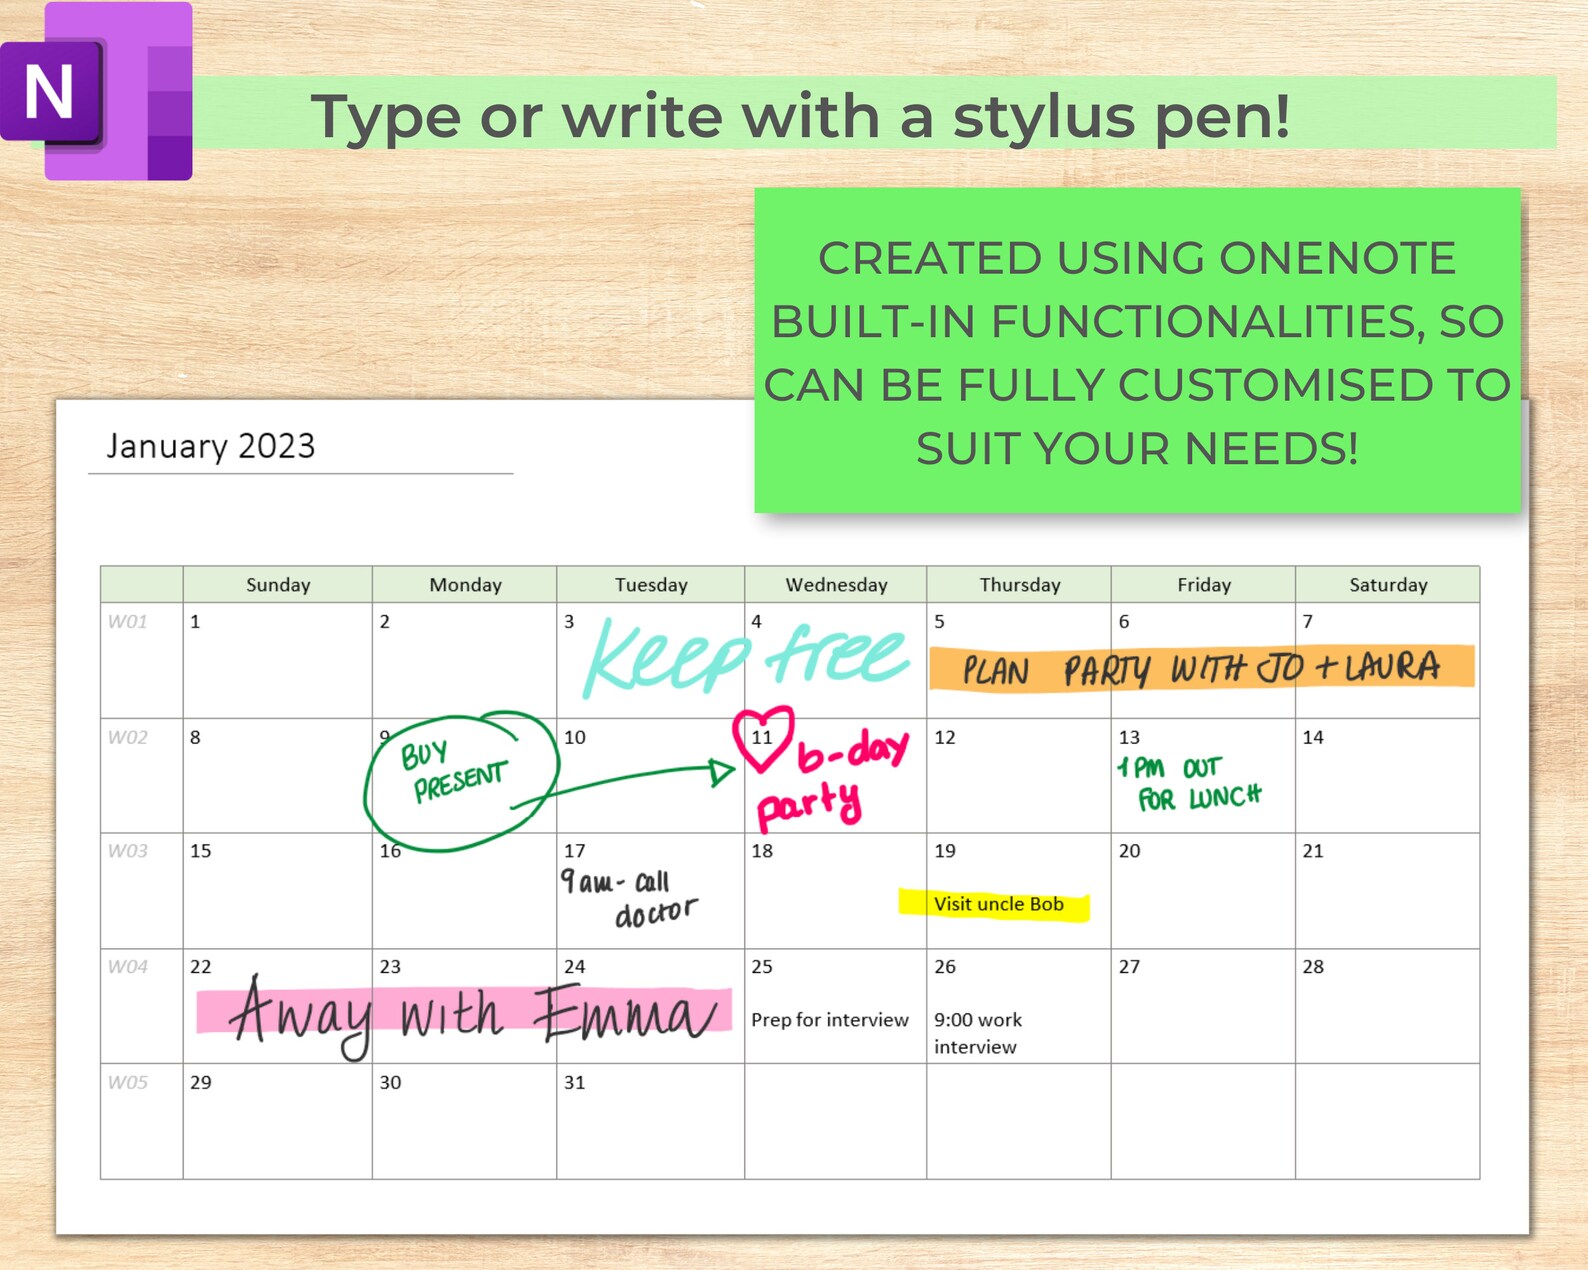 N
Type or write with a stylus pen!
CREATED USING ONENOTE
BUILT-IN FUNCTIONALITIES, SO
CAN BE FULLY CUSTOMISED TO
SUIT YOUR NEEDS!
January 2023
Sunday Monday Tuesday Wednesday Thursday Friday Saturday
W01 1 2 3 4 5 6 7
Keep free
PLAN PARTY WITH JO + LAURA
W02 8 9 10 11 12 13 14
BUY
PRESENT
b-day
party
1PM OUT
FOR LUNCH
W03 15 16 17 18 19 20 21
9am- call
doctor
Visit uncle Bob
W04 22 23 24 25 26 27 28
Away with Emma
Prep for interview
9:00 work
interview
W05 29 30 31